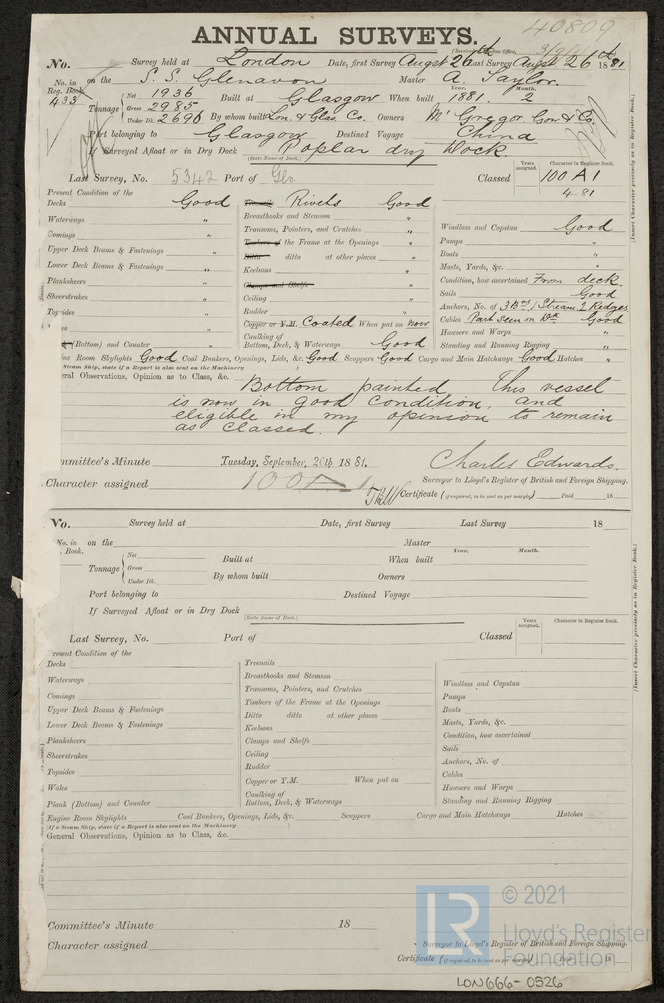 40809
ANNUAL SURVEYS.
No. Survey held at London Date, first Survey Augst 26th Last Survey Augst 26th 1881
No. in Reg. Book 433 on the S. S. Glenavon Master A. Taylor.
Tonnage Net 1936 Gross 2985 Under Dk. 2690 Built at Glasgow When built Year. 1881. Month. 2
By whom built Lon. & Glas. Co. Owners McGregor Gow & Co.
Port belonging to Glasgow Destined Voyage China
If Surveyed Afloat or in Dry Dock Poplar dry Dock.
(State Name of Dock.)
Years assigned. Character in Register Book.
Last Survey, No. 5342 Port of Gls Classed 100 A1
4.81
(Insert Character precisely as in Register Book.)
Present Condition of the
Decks Good
Waterways "
Comings "
Upper Deck Beams & Fastenings "
Lower Deck Beams & Fastenings "
Planksheers "
Sheerstrakes "
Topsides "
es "
(Bottom) and Counter "
Treenails Rivets Good
Breasthooks and Stemson "
Transoms, Pointers, and Crutches "
Timbers of the Frame at the Openings "
Ditto ditto at other places "
Keelsons "
Clamps and Shelfs
Ceiling "
Rudder "
Copper or Y.M. Coated When put on now
Caulking of
Bottom, Deck, & Waterways Good
Windlass and Capstan Good
Pumps "
Boats "
Masts, Yards, &c. "
Condition, how ascertained From deck.
Sails Good
Anchors, No. of 3 Brs 1 Stream 2 Kedges
Cables Part Seen on Dk Good
Hawsers and Warps "
Standing and Running Rigging "
ine Room Skylights Good Coal Bunkers, Openings, Lids, &c. Good Scuppers Good Cargo and Main Hatchways Good Hatches "
Steam Ship, state if a Report is also sent on the Machinery
eral Observations, Opinion as to Class, &c.
Bottom painted This vessel
is now in good condition, and
eligible in my opinion to remain
as classed.
mmittee's Minute Tuesday, September, 20th 1881.
Charles Edwards.
Character assigned 100A1
Surveyor to Lloyd's Register of British and Foreign Shipping.
Certificate (if required, to be sent as per margin) Paid 18
No. Survey held at Date, first Survey Last Survey 18
No. in . Book. on the Master
Tonnage Net Gross Under Dk. Built at When built Year. Month.
By whom built Owners
Port belonging to Destined Voyage
If Surveyed Afloat or in Dry Dock
(State Name of Dock.)
Years assigned. Character in Register Book.
Last Survey, No. Port of Classed
(Insert Character precisely as in Register Book.)
resent Condition of the
Decks
Waterways
Comings
Upper Deck Beams & Fastenings
Lower Deck Beams & Fastenings
Planksheers
Sheerstrakes
Topsides
Wales
Plank (Bottom) and Counter
Treenails
Breasthooks and Stemson
Transoms, Pointers, and Crutches
Timbers of the Frame at the Openings
Ditto ditto at other places
Keelsons
Clamps and Shelfs
Ceiling
Rudder
Copper or Y.M. When put on
Caulking of
Bottom, Deck, & Waterways
Windlass and Capstan
Pumps
Boats
Masts, Yards, &c.
Condition, how ascertained
Sails
Anchors, No. of
Cables
Hawsers and Warps
Standing and Running Rigging
Engine Room Skylights Coal Bunkers, Openings, Lids, &c. Scuppers Cargo and Main Hatchways Hatches
If a Steam Ship, state if a Report is also sent on the Machinery
General Observations, Opinion as to Class, &c.
Committee's Minute 18
Character assigned
Surveyor to Lloyd's Register of British and Foreign Shipping.
Certificate (if required, to be sent as per margin) Paid 18
LR © 2021
Lloyd's Register
Foundation
LON666-0526